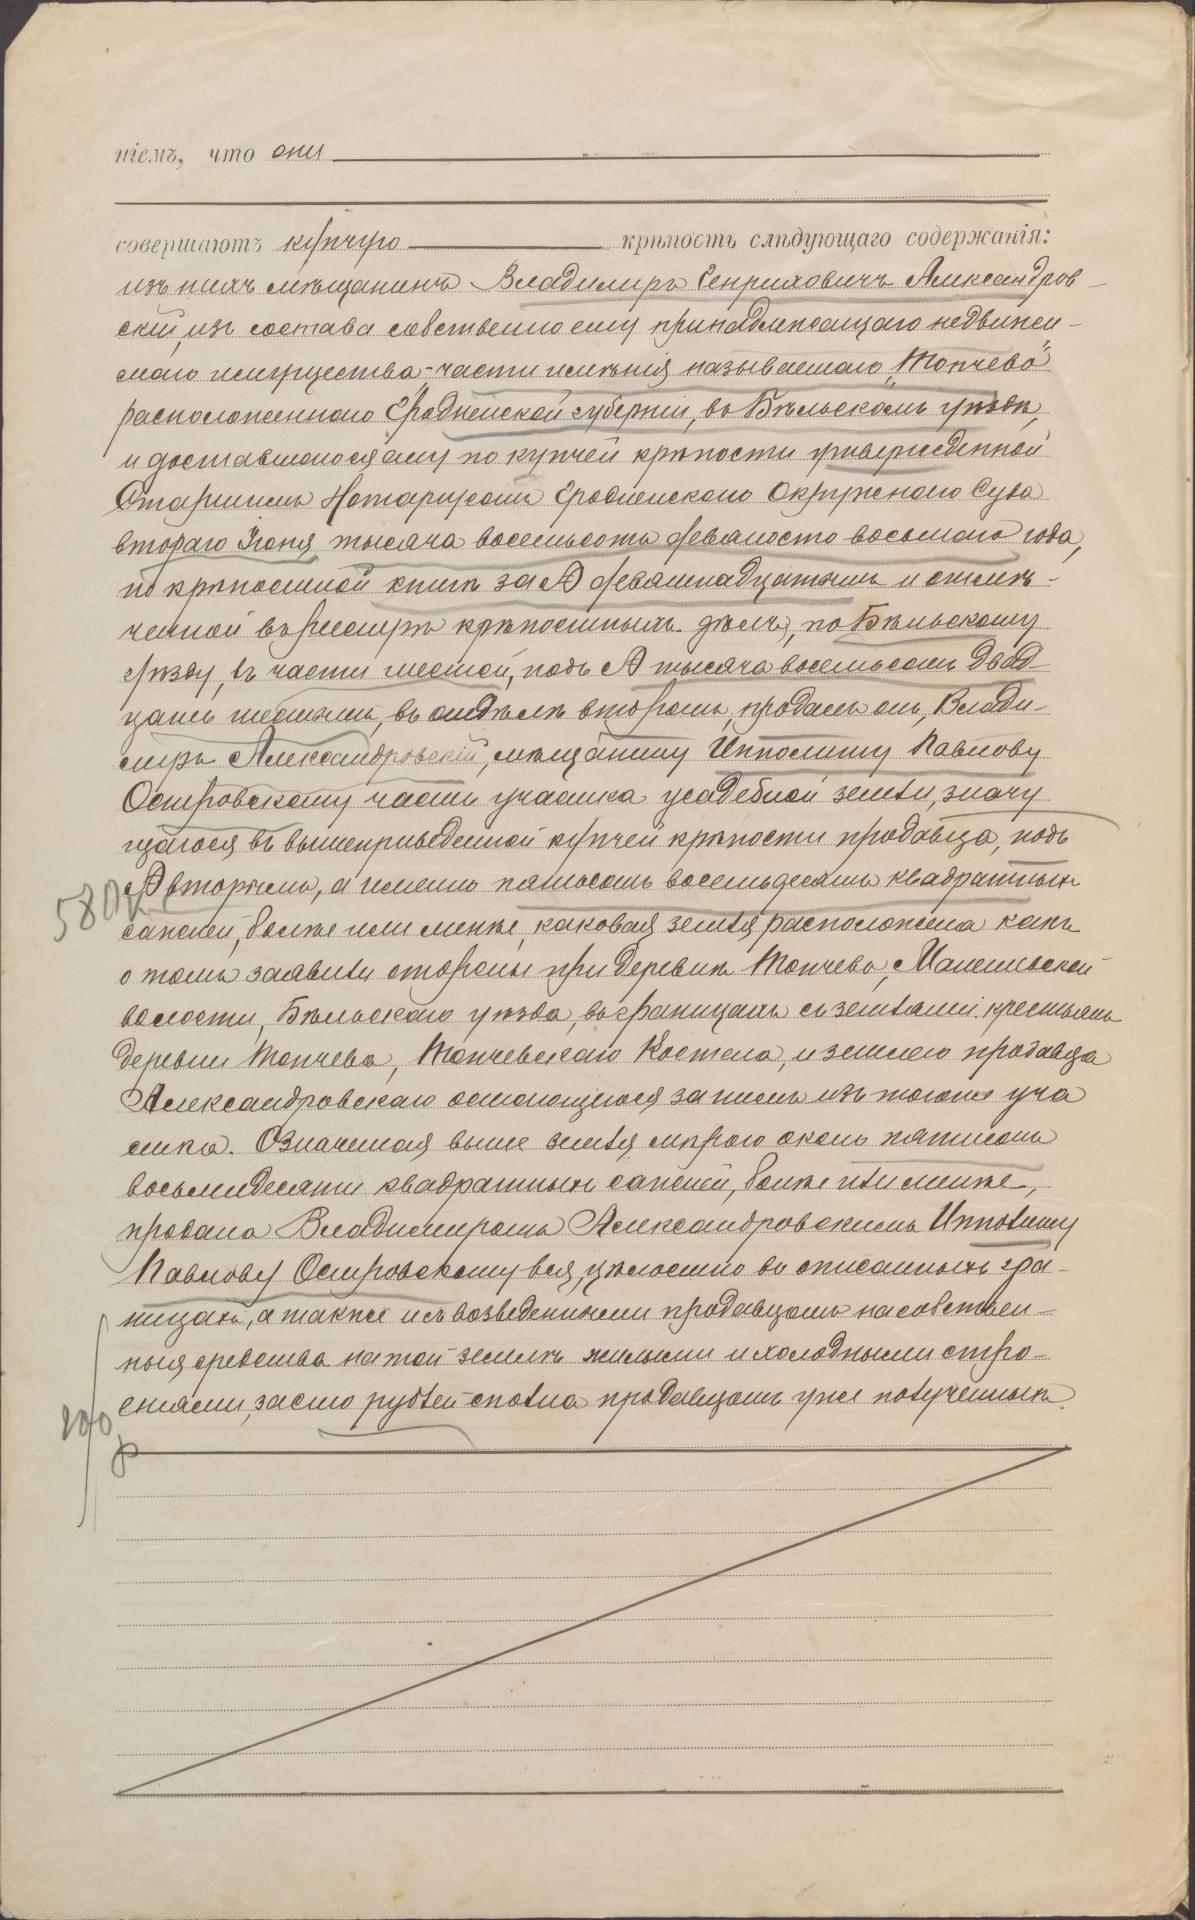 ніемъ, что они
совершаютъ купчую крѣпость слѣдующаго содержанія:
изъ нихъ мѣщанинъ Владимиръ Генриховичъ Александров-
скій, изъ состава собственно ему принадлежащаго недвижи-
маго имущества-части имѣнія называемаго „Топчево"
расположеннаго Гродненской губерніи, въ Бѣльскомъ уѣздѣ,
и доставшагося ему по купчей крѣпости утвержденной
Старшимъ Нотаріусомъ Гродненскаго Окружнаго Суда
втораго Іюня тысяча восемьсотъ девяносто восьмаго года,
по крѣпостной книгѣ за № девятнадцатымъ и отмѣ-
ченной въ реестрѣ крѣпостныхъ дѣлъ, по Бѣльскому
уѣзду, въ части шестой, подъ № тысяча восемьсотъ двад-
цать шестымъ, въ отдѣлѣ второмъ, продалъ онъ, Влади-
миръ Александровскій, мѣщанину Ипполиту Павлову
Островскому часть участка усадебной земли, значу
щагося въ вышеприведенной купчей крѣпости продавца, подъ
№ вторымъ, а именно пятьсотъ восемьдесятъ квадратныхъ
580
саженей, болѣе или менѣе, каковая земля расположена какъ
о томъ заявили стороны при деревнѣ Топчево,
волости, Бѣльскаго уѣзда, въ границахъ съ землями крестьянъ
деревни Топчево, Топчевскаго Костела, и землею продавца
Александровскаго остающегося за нимъ изъ тогоже уча
стка. Означенная выше земля мѣрою около пятисотъ
восьмидесяти квадратныхъ саженей, болѣе или менѣе,
продана Владимиромъ Александровскимъ Ипполиту
Павлову Островскому вся, цѣлостно въ описанныхъ гра-
ницахъ, а также и съ возведенными продавцомъ на собствен-
ныя средства на той землѣ жилыми и холодными стро-
еніями, за сто рублей сполна продавцомъ уже полученныхъ.
100